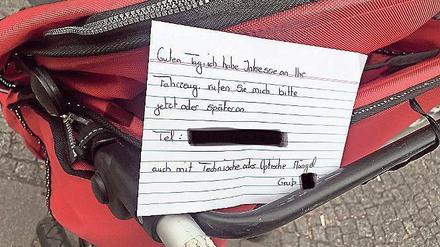 Guten Tag ich habe Interesse an Ihr
Fahrzeug rufen Sie mich bitte
jetzt oder später an
Tel:
auch mit Technische oder Optische Mängel
Gruß